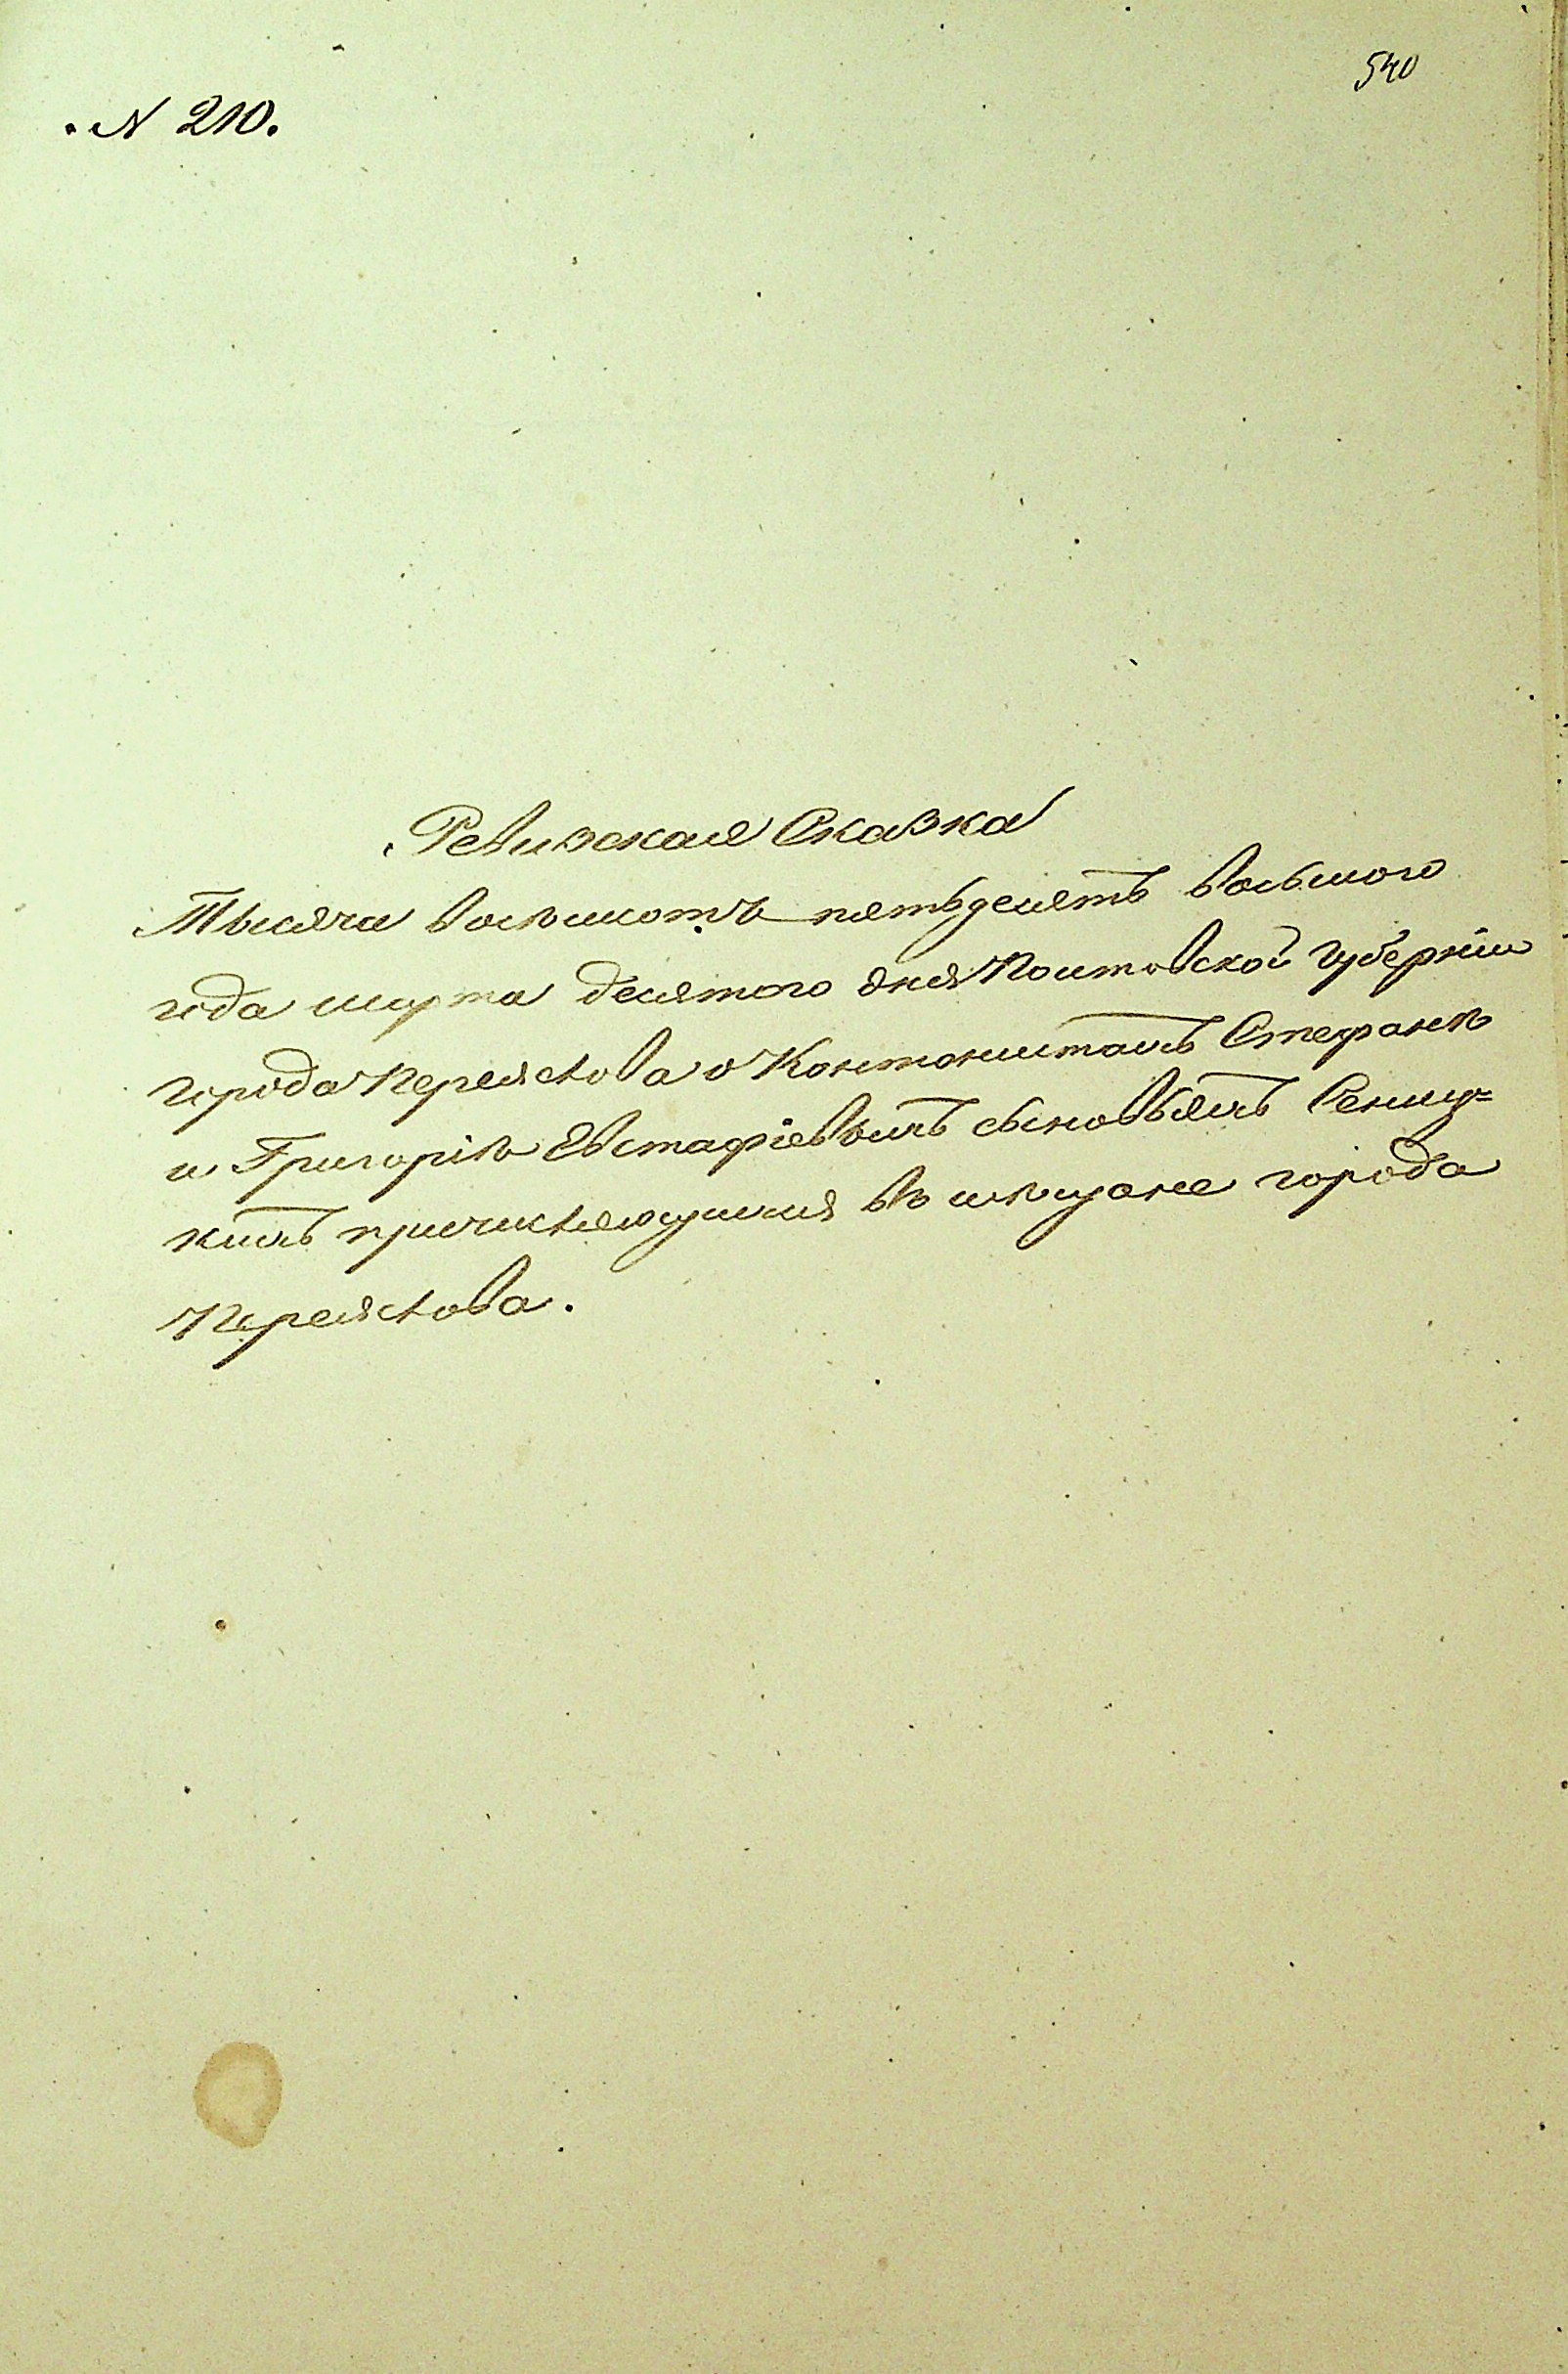 540
№ 210.
Ревизская Сказка
Тысяча восьмсотъ пятьдесятъ восьмого
года марта десятого дня Полтовской губерніи
города Переяслова о Контонистахъ Стефанѣ
и Григоріѣ Евстафіевыхъ сыновьяхъ
причисляющихся въ мѣщане города
Переяслова.